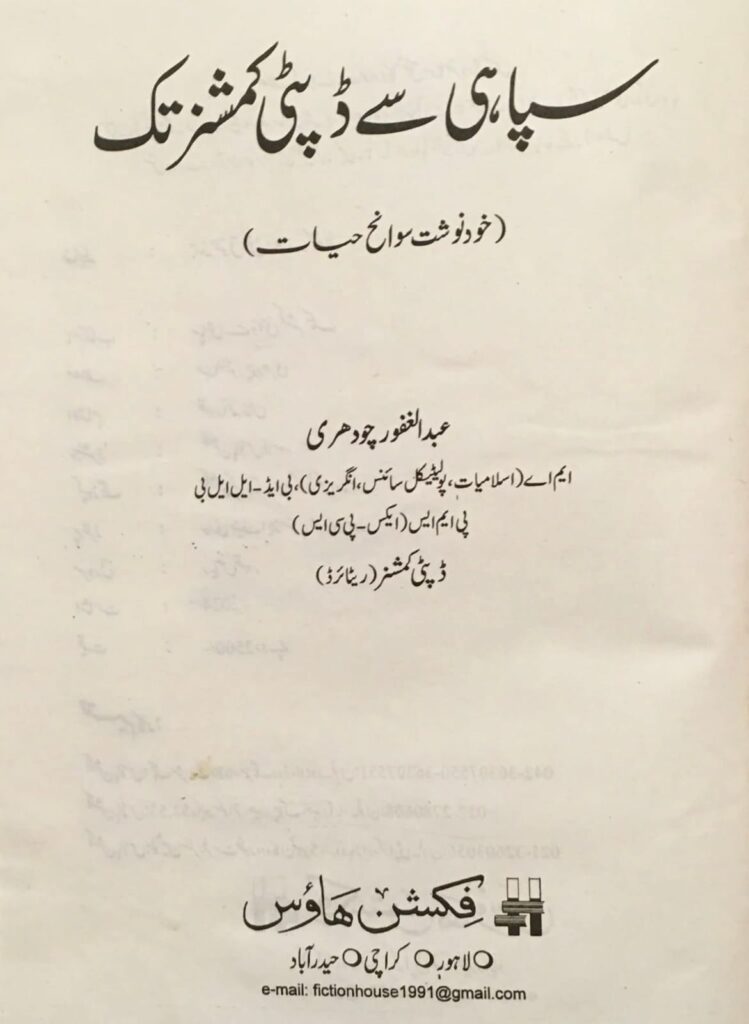 سپاہی سے ڈپٹی کمشنر تک
(خودنوشت سوانح حیات)
عبدالغفور چودھری
ایم اے (اسلامیات، پولیٹیکل سائنس، انگریزی)، بی ایڈ-ایل ایل بی
پی ایم ایس (ایکس-پی سی ایس)
ڈپٹی کمشنر (ریٹائرڈ)
فکشن ہاؤس
لاہور کراچی حیدرآباد
e-mail: fictionhouse1991@gmail.com